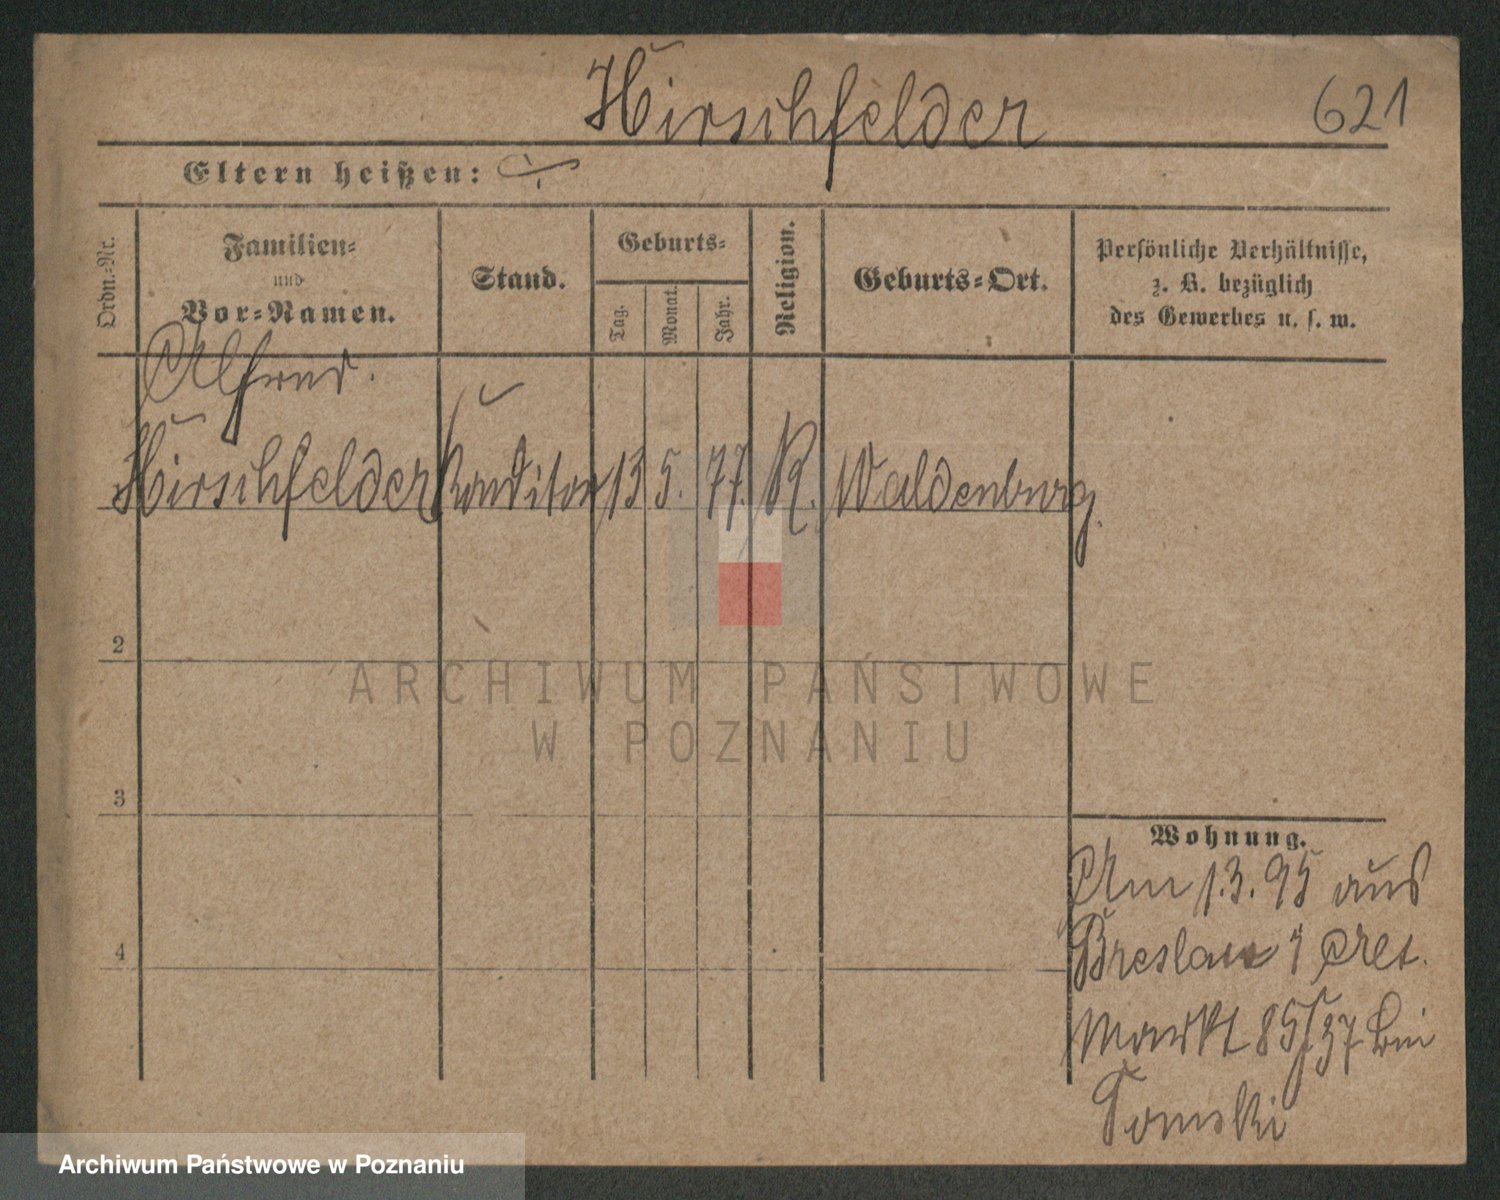 Hirschfelder 621
Eltern heißen:
Ordn.-Nr.
Familien-
und
Vor-Namen.
Stand.
Geburts-
Tag.
Monat.
Jahr.
Religion.
Geburts-Ort.
Persönliche Verhältnisse,
z. B. bezüglich
des Gewerbes u. s. w.
Alfred.
Hirschfelder Konditor 13 5. 77. K. Waldenburg.
2
3
4
Wohnung.
Am 1.3.95 aus
Breslau
Markt 85/37 bei
Tomski
ARCHIWUM PAŃSTWOWE
W POZNANIU
Archiwum Państwowe w Poznaniu